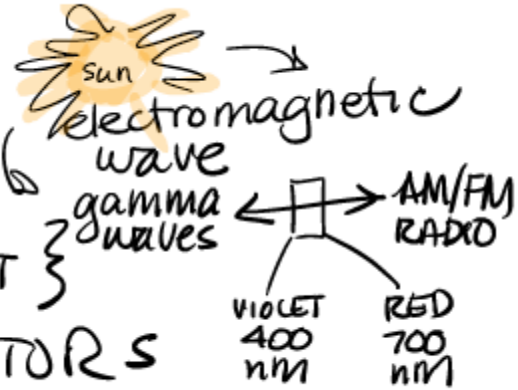 sun
electromagnetic
wave
gamma
waves
AM/FM
RADIO
T }
VIOLET
400
nm
RED
700
nm
TORS